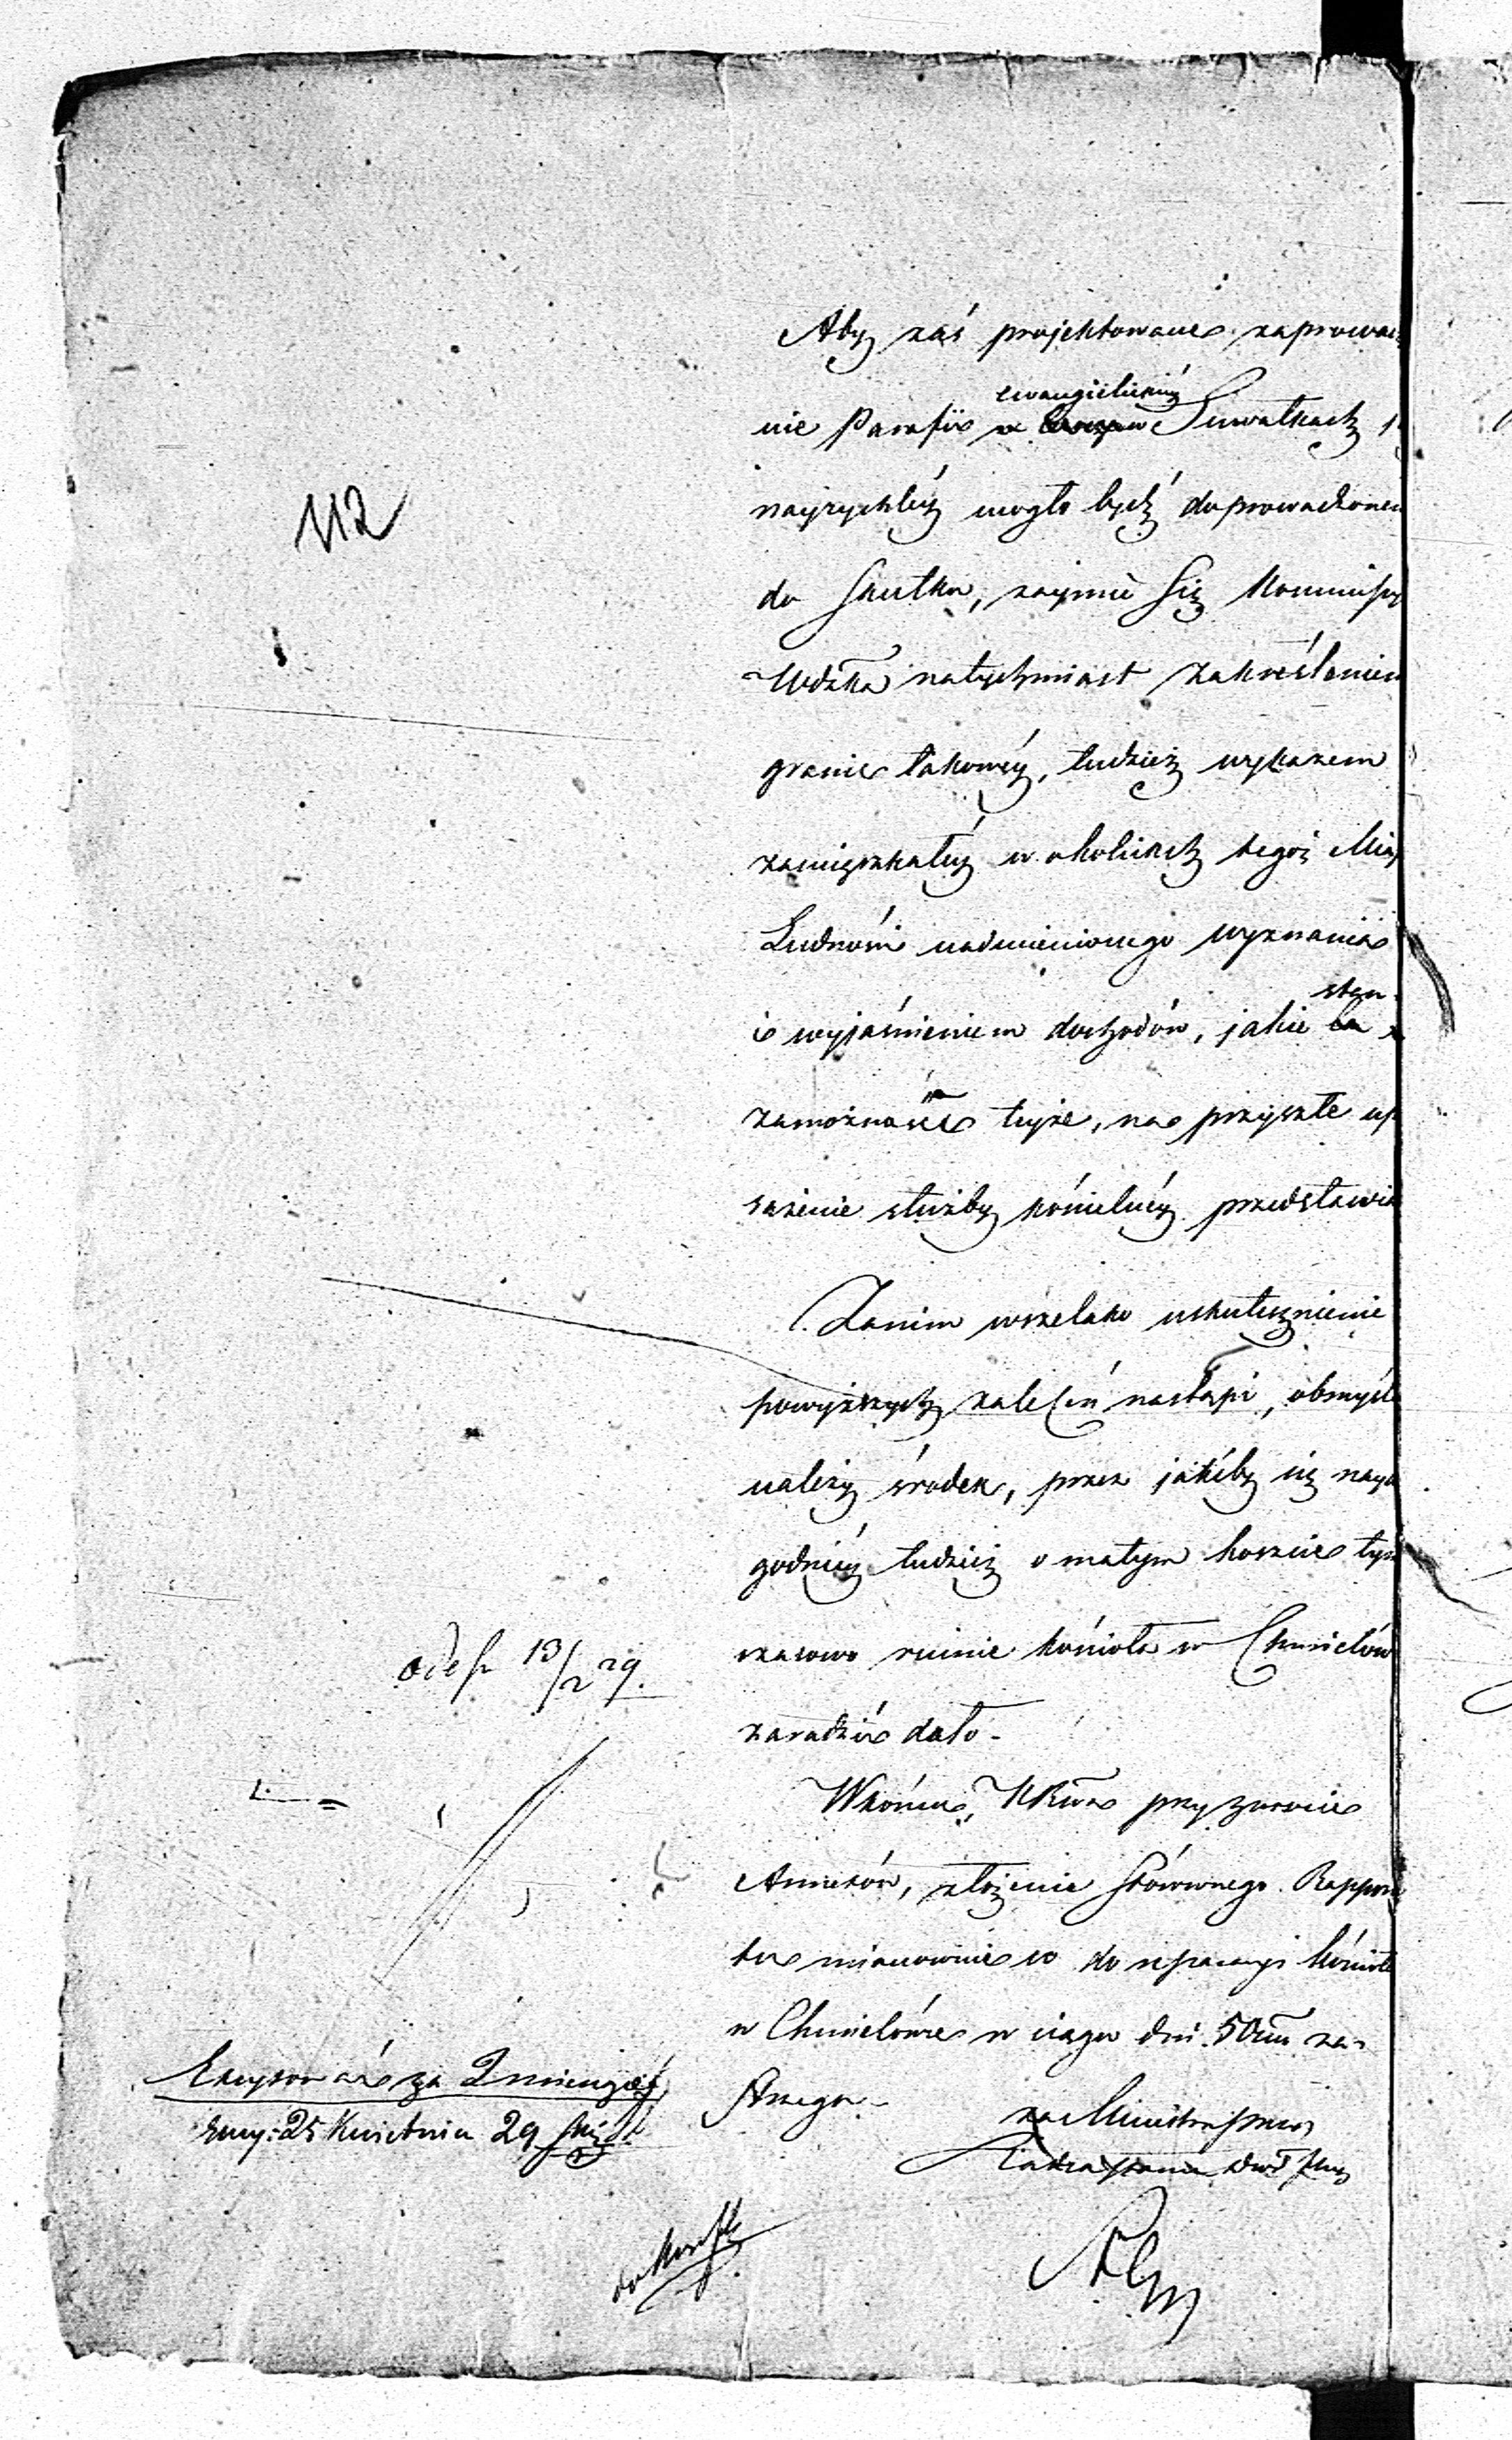 112
Aby zaś projektowane zaprowa
ewangielickiéy
nie Parafii w Suwałkach
nayrychléy mogło bydź doprowadzonem
do Skutku, zaymie Się Kommissya
Wdzka natychmiast zakreśleniem
granic takowéy, tudzież wykazem
zamięszkałéy w okolicach tegoż Mia
Ludności nadmienionego wyznania
stan
i wyjaśnieniem dochodów, jakie
zamożności teyże, na przyszłe up
sażenie służby kościelnéy przedstawia
Zanim wszelako uskutecznienie
powyższych zaleceń nastąpi, obmyśle
należy środek, przez jakiby się nayd
godniéy tudzież o małym koszcie tym
czasowo ruinie kościoła w Chmielów
zaradzić dało.
Wkońcu, przy zwrocie
Annexów, złożenie Rappor
tu mianowicie co do reparacyi kościoła
w Chmielówce w ciągu dni 50ciu za
strzega.
za Ministra Prez
Radca Stanu
odesł 13/2 29.
25 Kwietnia 29